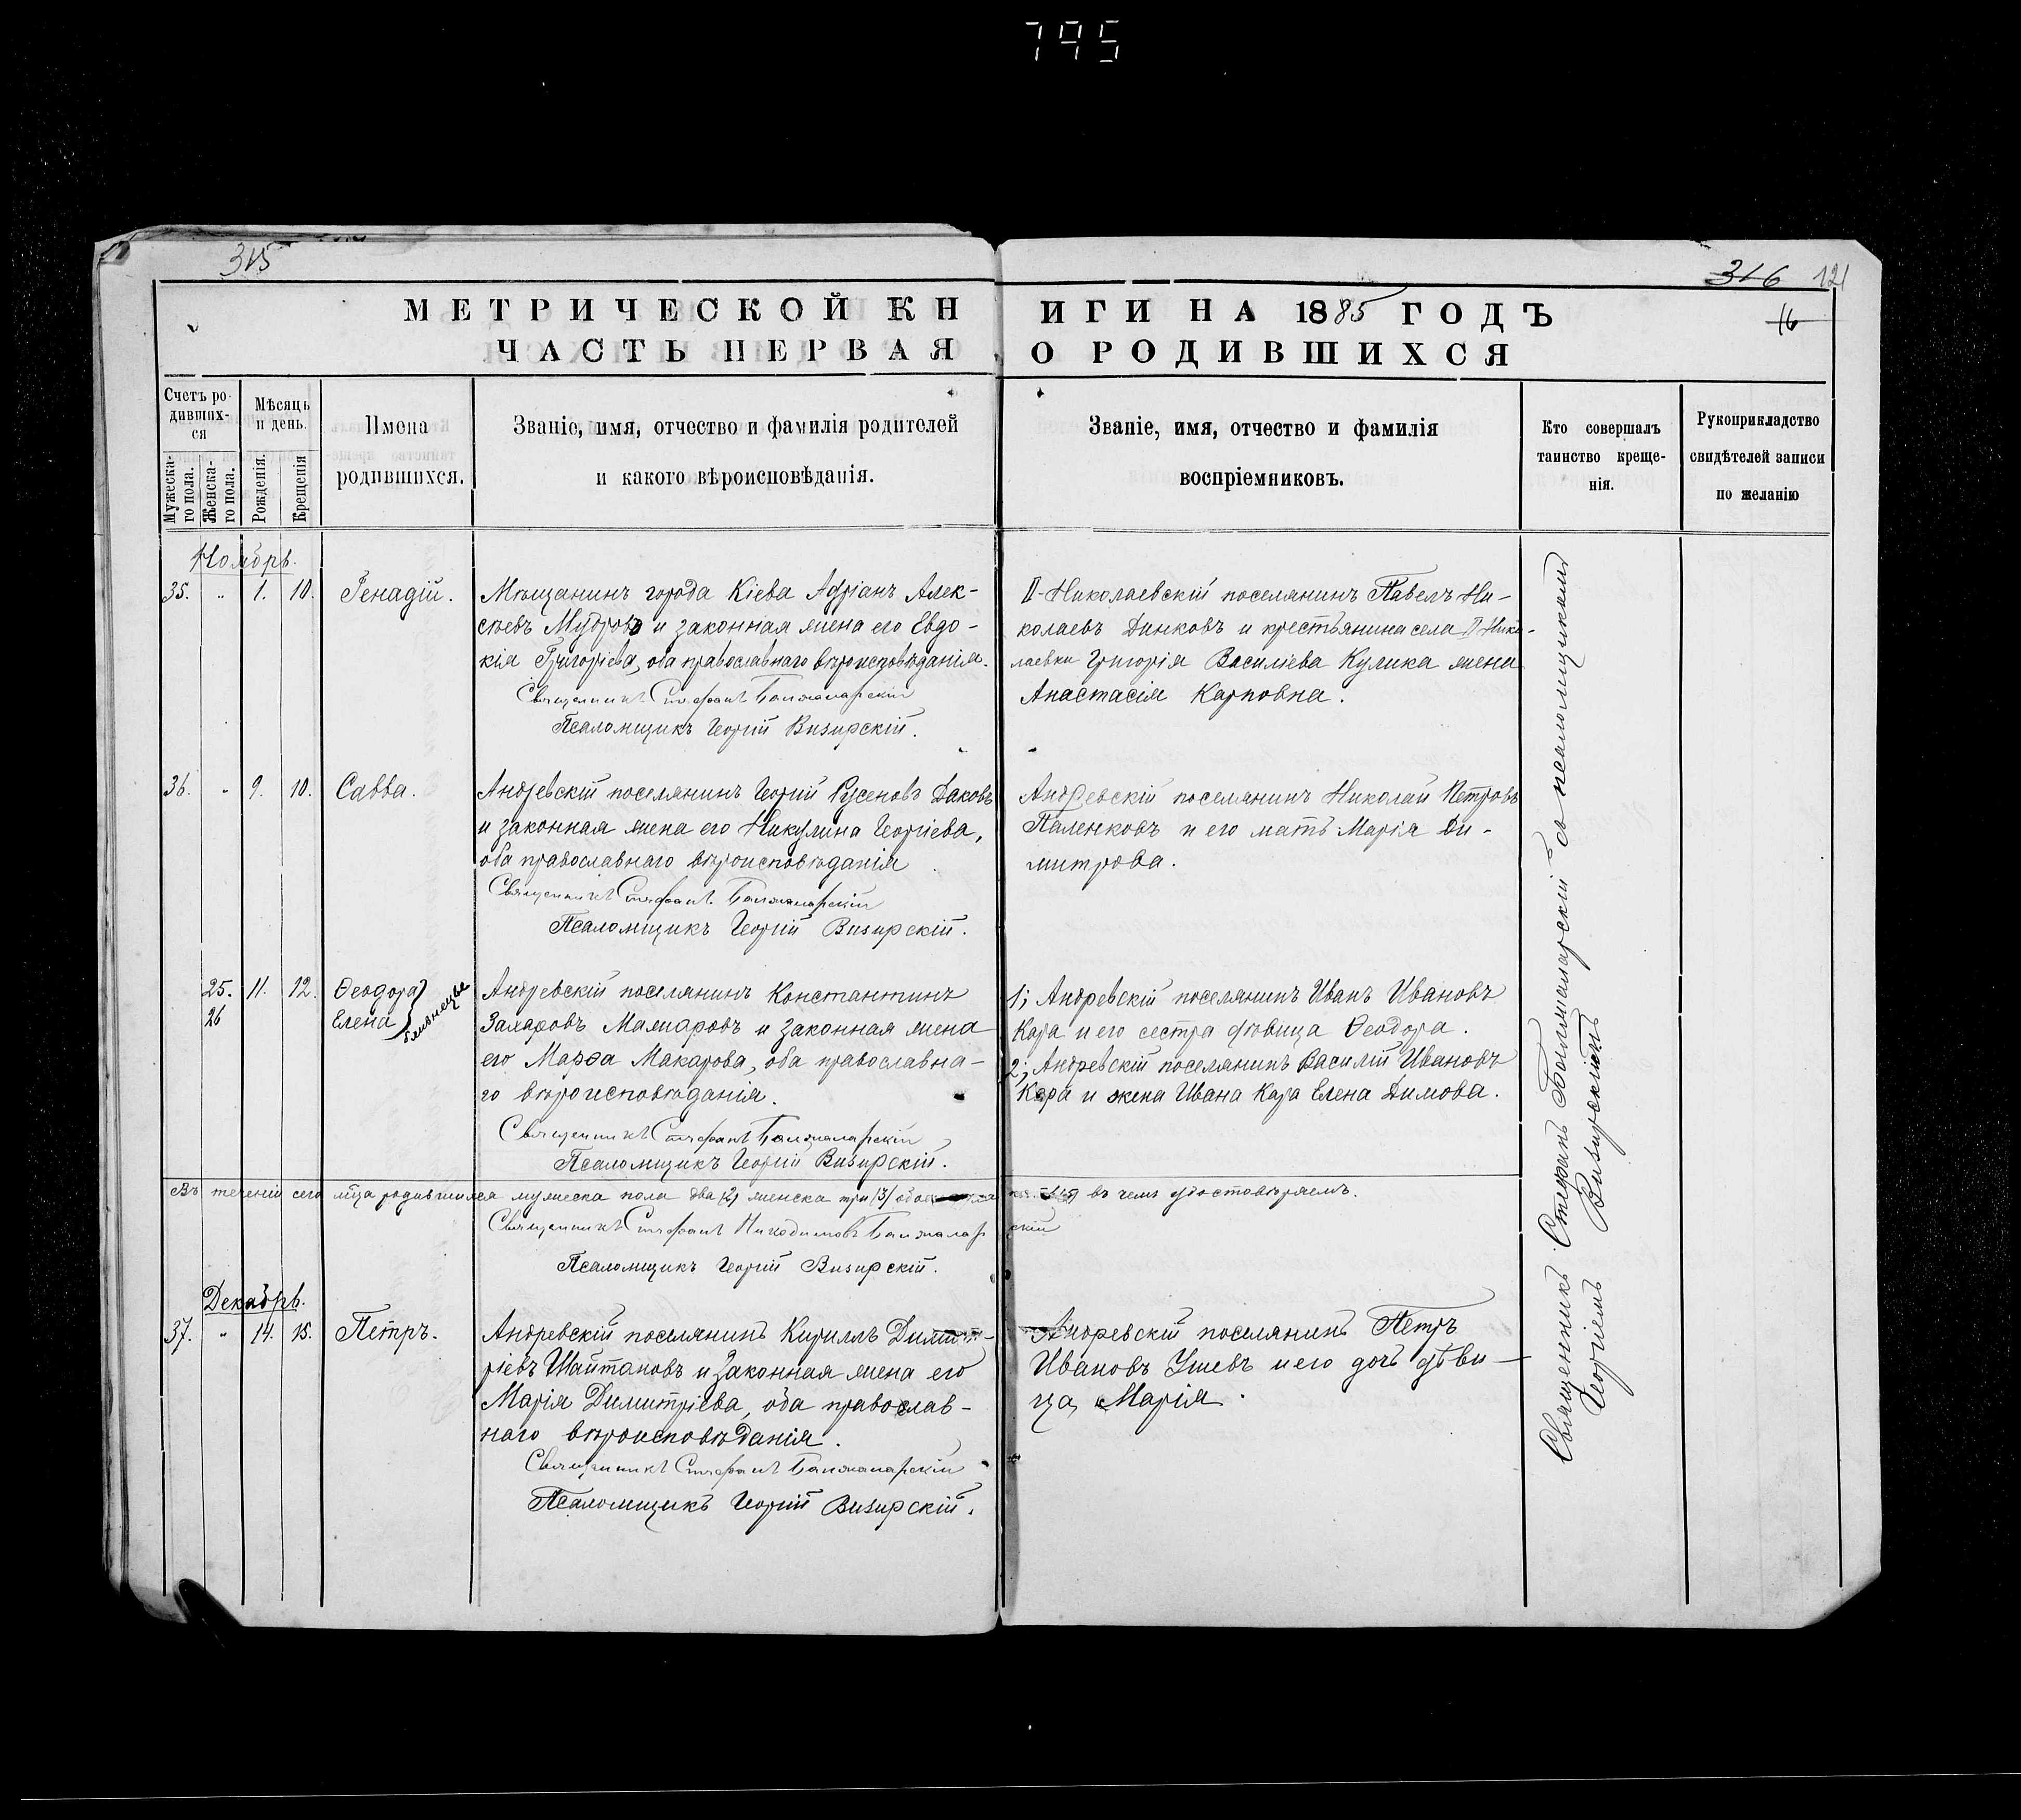 795
315
316 121
16
МЕТРИЧЕСКОЙ КНИГИ НА 1885 ГОДЪ
ЧАСТЬ ПЕРВАЯ О РОДИВШИХСЯ
Счетъ ро-
дивших-
ся
Мужеска-
го пола.
Женска-
го пола.
Мѣсяцъ
и день.
Рожденія.
Крещенія
Имена
родившихся.
Званіе, имя, отчество и фамилія родителей
и какого вѣроисповѣданія.
Званіе, имя, отчество и фамилія
воспріемниковъ.
Кто совершалъ
таинство креще-
нія.
Рукоприкладство
свидѣтелей записи
по желанію
Ноябрь.
35. " 1. 10. Генадій.
Мѣщанинъ города Кіева Адріанъ Алек-
сѣевъ Мудровъ и законная жена его Евдо-
кія Григоріева, оба православнаго вѣроисповѣданія.
Священникъ Стефанъ
Псаломщикъ Георгій Визирскій.
II-Николаевскій поселянинъ Павелъ Ни-
колаевъ Динковъ и крестьянина села II Нико-
лаевки Григорія Василіева Кулика жена
Анастасія Карповна.
36. " 9. 10. Савва.
Андревскій поселянинъ Георгій Русеновъ Даковъ
и законная жена его Никулина Георгіева,
оба православнаго вѣроисповѣданія
Священникъ Стефанъ
Псаломщикъ Георгій Визирскій.
Андревскій поселянинъ Николай Петровъ
Паленковъ и его мать Марія Ди-
митрова.
25. 11. 12. Ѳеодора
26 Елена
близнецы
Андревскій поселянинъ Константинъ
Захаровъ Мамаровъ и законная жена
его Марѳа Макарова, оба православна-
го вѣроисповѣданія.
Священникъ Стефанъ
Псаломщикъ Георгій Визирскій.
1; Андревскій поселянинъ Иванъ Ивановъ
Кара и его сестра дѣвица Ѳеодора.
2; Андревскій поселянинъ Василій Ивановъ
Кара и жена Ивана Кара Елена Димова.
Въ теченіи сего мѣца родившихся мужеска пола два /2/ женска три /3/ въ чемъ удостовѣряемъ.
Священникъ Стефанъ Никодимовъ
Псаломщикъ Георгій Визирскій.
Декабрь.
37. " 14. 15. Петръ.
Андревскій поселянинъ Кириллъ Димит-
ріевъ Шайтановъ и законная жена его
Марія Димитріева, оба православ-
наго вѣроисповѣданія.
Священникъ Стефанъ
Псаломщикъ Георгій Визирскій.
Андревскій поселянинъ Петръ
Ивановъ Ушевъ и его дочь дѣви-
ца Марія.
Священникъ Стефанъ съ псаломщикомъ
Георгіемъ Визирскимъ